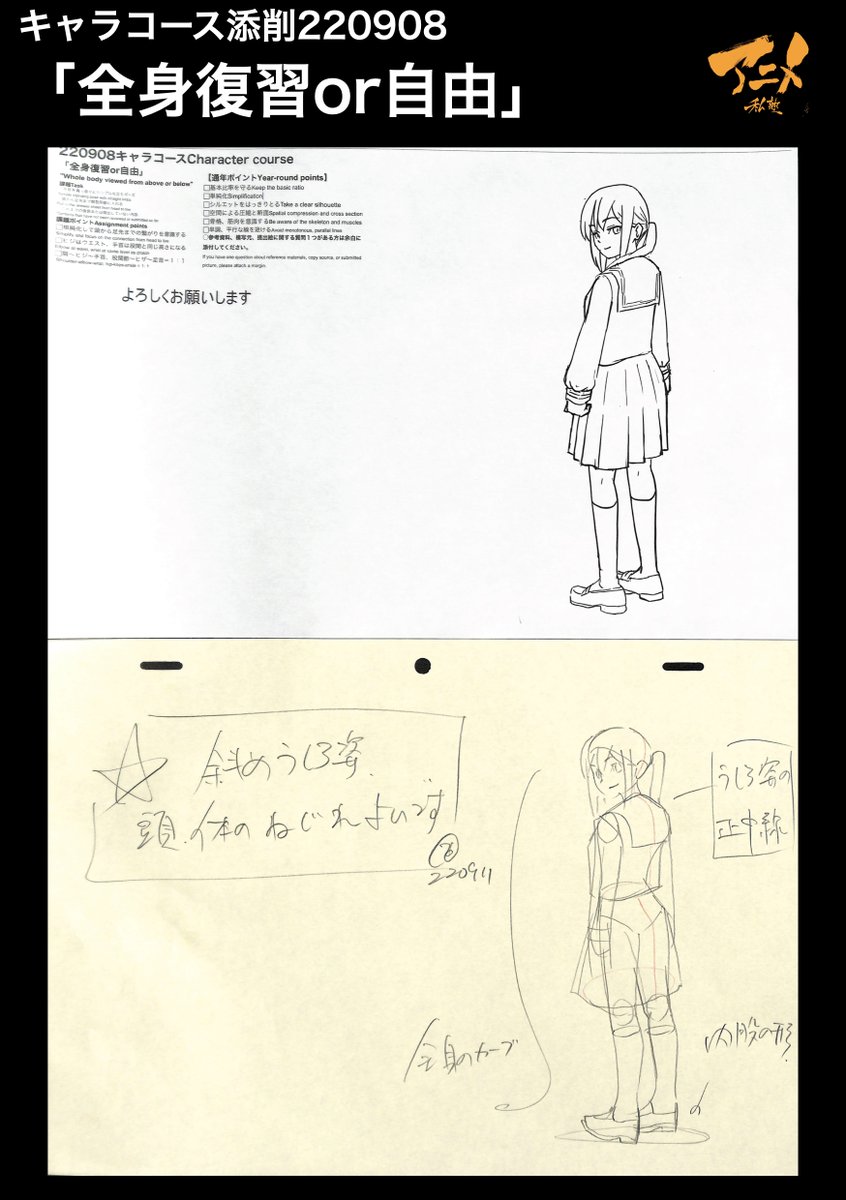 キャラコース添削220908
「全身復習or自由」
アニメ
私塾
220908キャラコースCharacter course
「全身復習or自由」
"Whole body viewed from above or below"
課題Task
課題ポイントAssignment points
【通年ポイントYear-round points】
□基本比率を守るKeep the basic ratio
□単純化Simplification
□シルエットをはっきりとるTake a clear silhouette
□空間による圧縮と断面Spatial compression and cross section
□骨格、筋肉を意識するBe aware of the skeleton and muscles
□単調、平行な線を避けるAvoid monotonous, parallel lines
○参考資料、模写元、提出絵に関する質問1つがある方は余白に
添付してください。
If you have any question about reference materials, copy source, or submitted
picture, please attach a margin.
よろしくお願いします
斜めうしろ姿
頭、体のねじれよいです
220911
うしろ姿の
正中線
全身のカーブ
内股の形